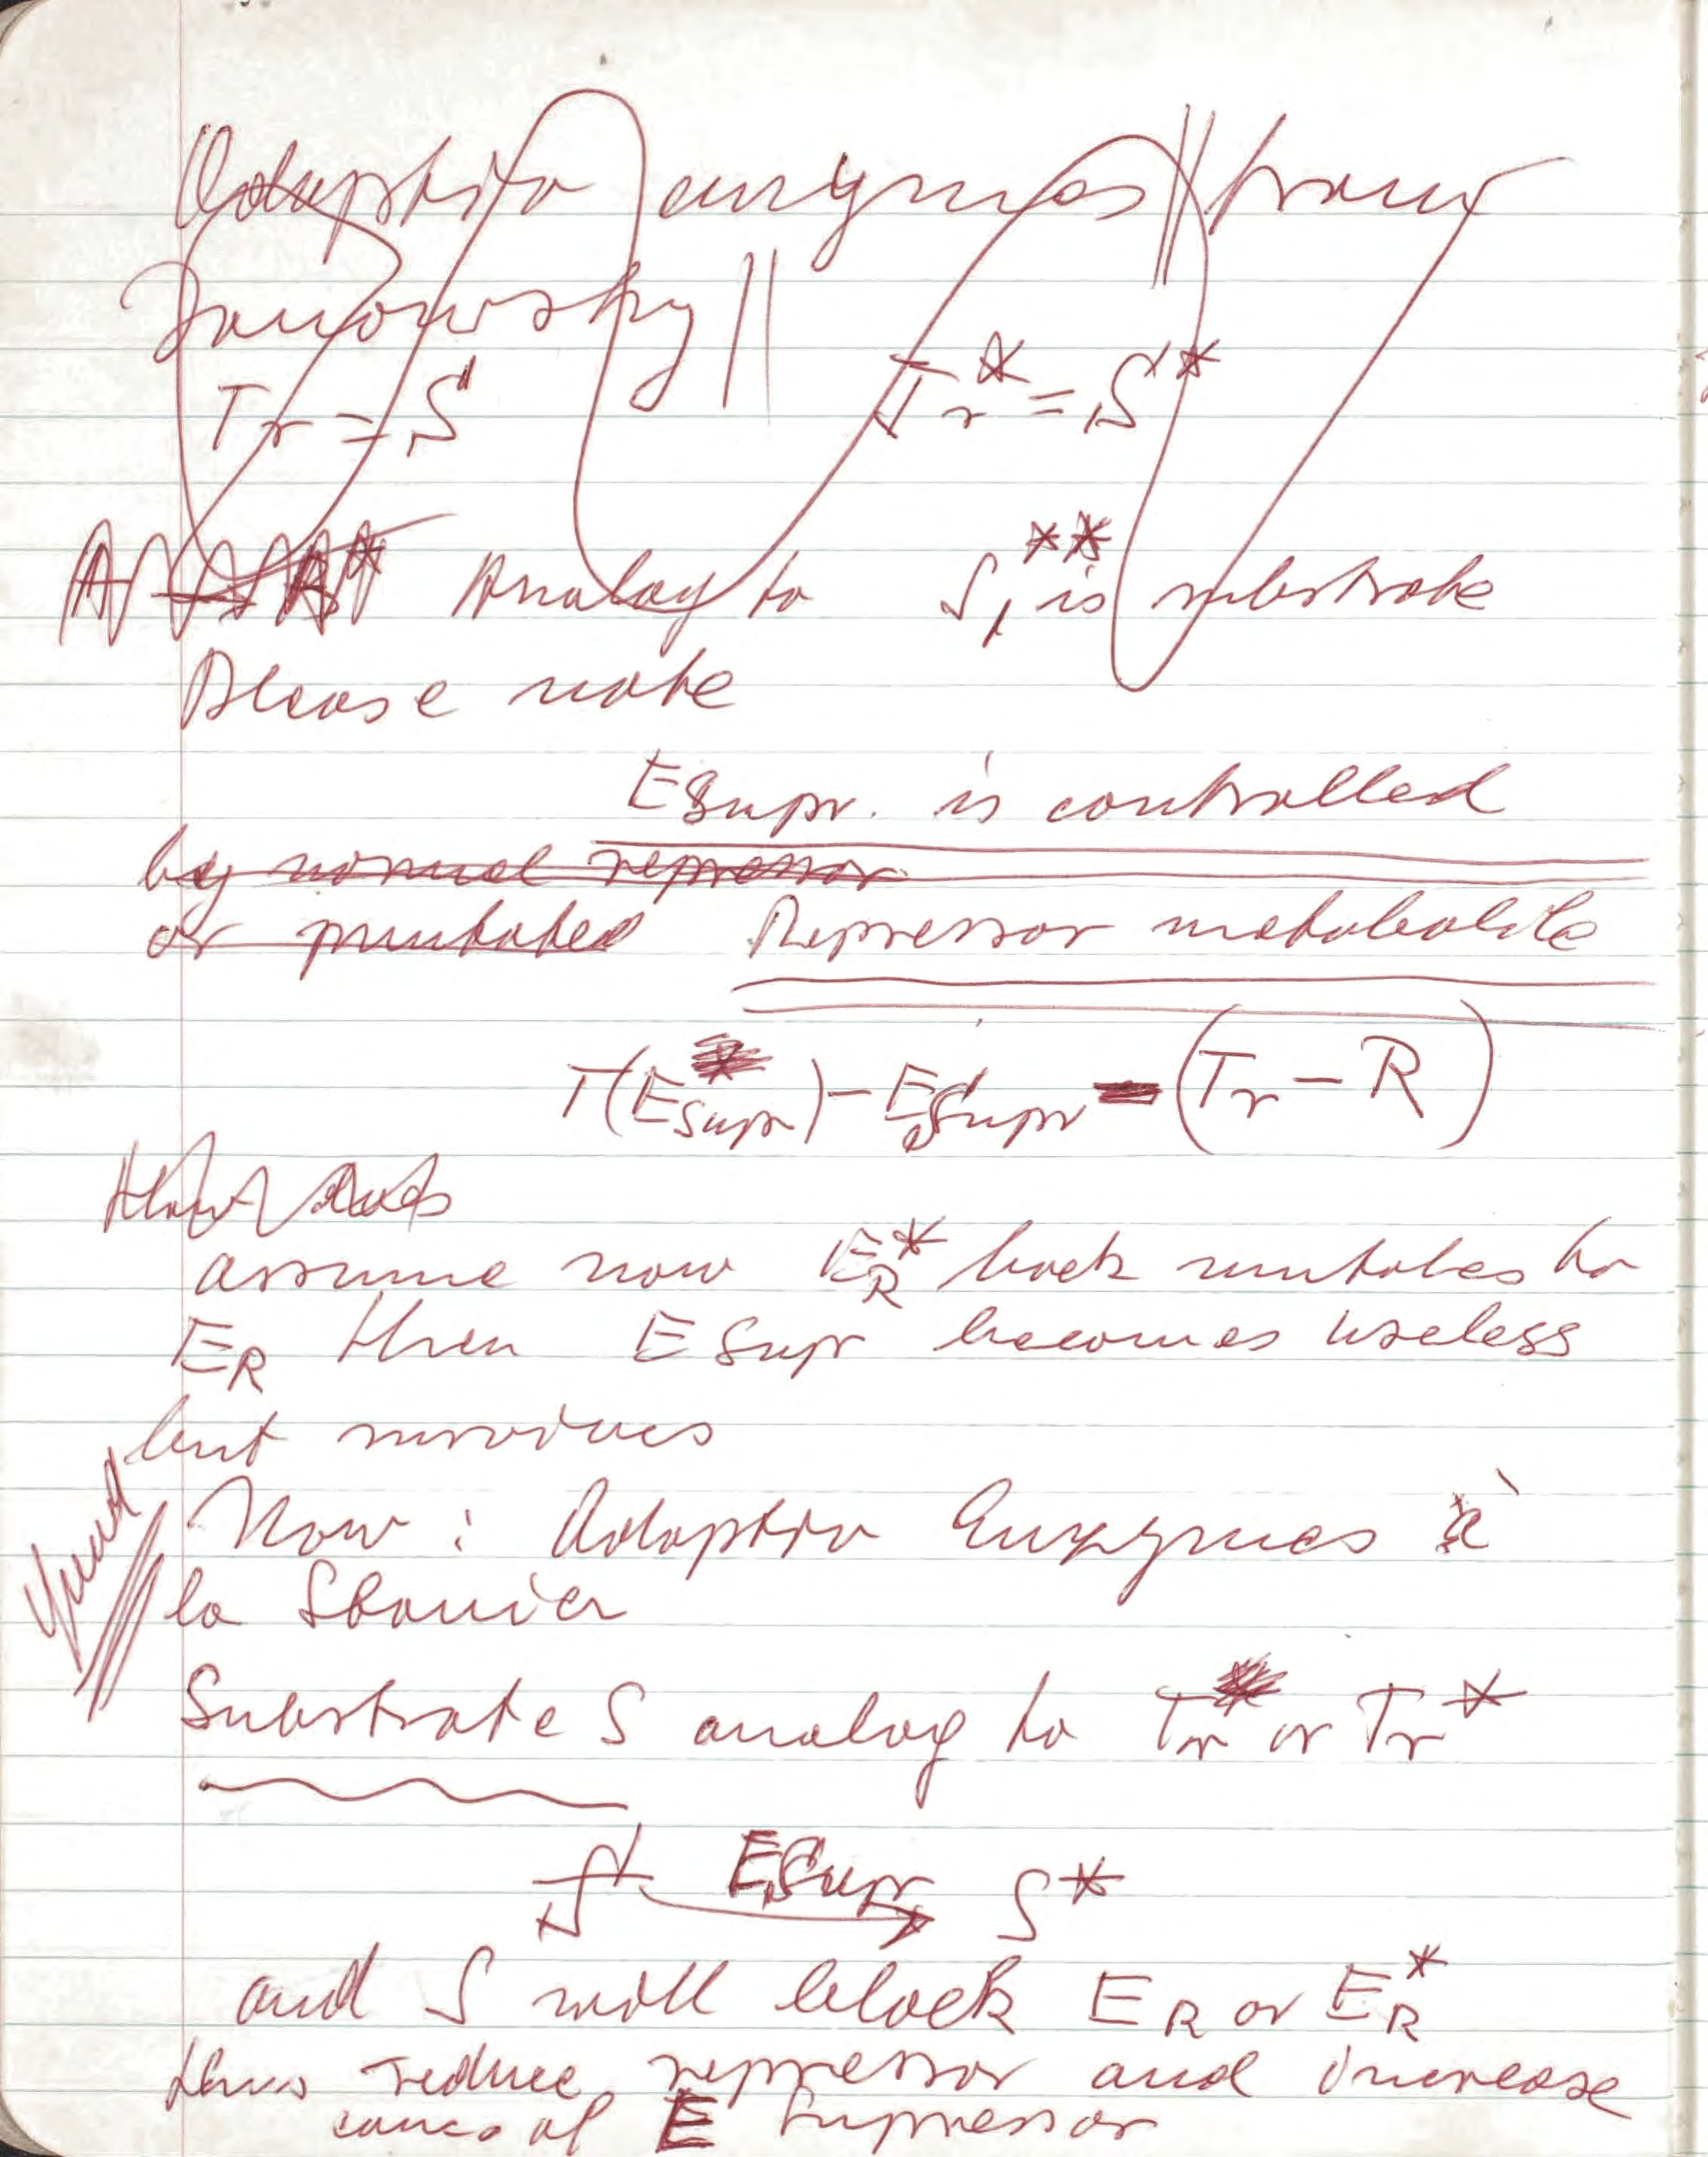 Adaptiv enzymes || from
Yanowsky ||
Tr = S Tr* = S*
Analog to S** is substrate
Please note
E Supr. is controlled
by normal repressor
or mutated Repressor metabolite
T(E Supr) – E Supr – (Tr – R)
assume now E_R* back mutates to
E_R then E Supr becomes useless
but survives
Now : Adaptiv Enzymes à
la Stanier
Substrate S analog to Tr or Tr*
S E Supr S*
and S will block E_R or E_R*
thus reduce repressor and increase
conc. of E Supressor